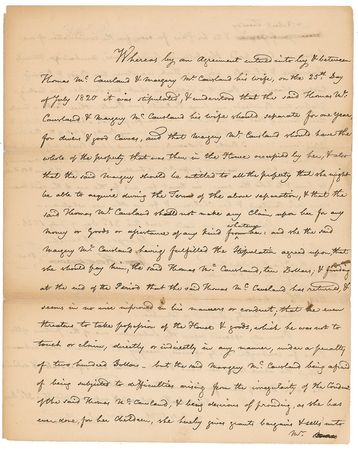 Whereas by an Agreement entered into by & between
Thomas Mc. Causland & Margery Mc. Causland his wife, on the 25th Day
of July 1820 it was stipulated, & understood that the said Thomas Mc.
Causland & Margery Mc. Causland his wife should separate for one year,
for divers & good Causes, and that Margery Mc. Causland should have the
whole of the property that was then in the House occupied by her, & also
that the said Margery should be entitled to all the property that she might
be able to acquire during the Term of the above separation, & that the
said Thomas Mc. Causland should not make any Claim upon her for any
Money or Goods or assistance of any kind whatever from her: and she the said
Margery Mc. Causland having fulfilled the Stipulation agreed upon, that
she should pay him, the said Thomas Mc. Causland, ten Dollars, & finding
at the end of the Period that the said Thomas Mc. Causland has returned, &
seems in no wise reformed in his manners or conduct, that he even
threatens to take possession of the House & goods, which he was not to
touch or claim, directly or indirectly in any manner, under a penalty
of two hundred Dollars – but the said Margery Mc. Causland being afraid
of being subjected to difficulties arising from the irregularity of the Conduct
of the said Thomas Mc. Causland, & being desirous of providing, as she has
ever done, for her Children, she hereby gives grants bargains & sells unto
Mr.